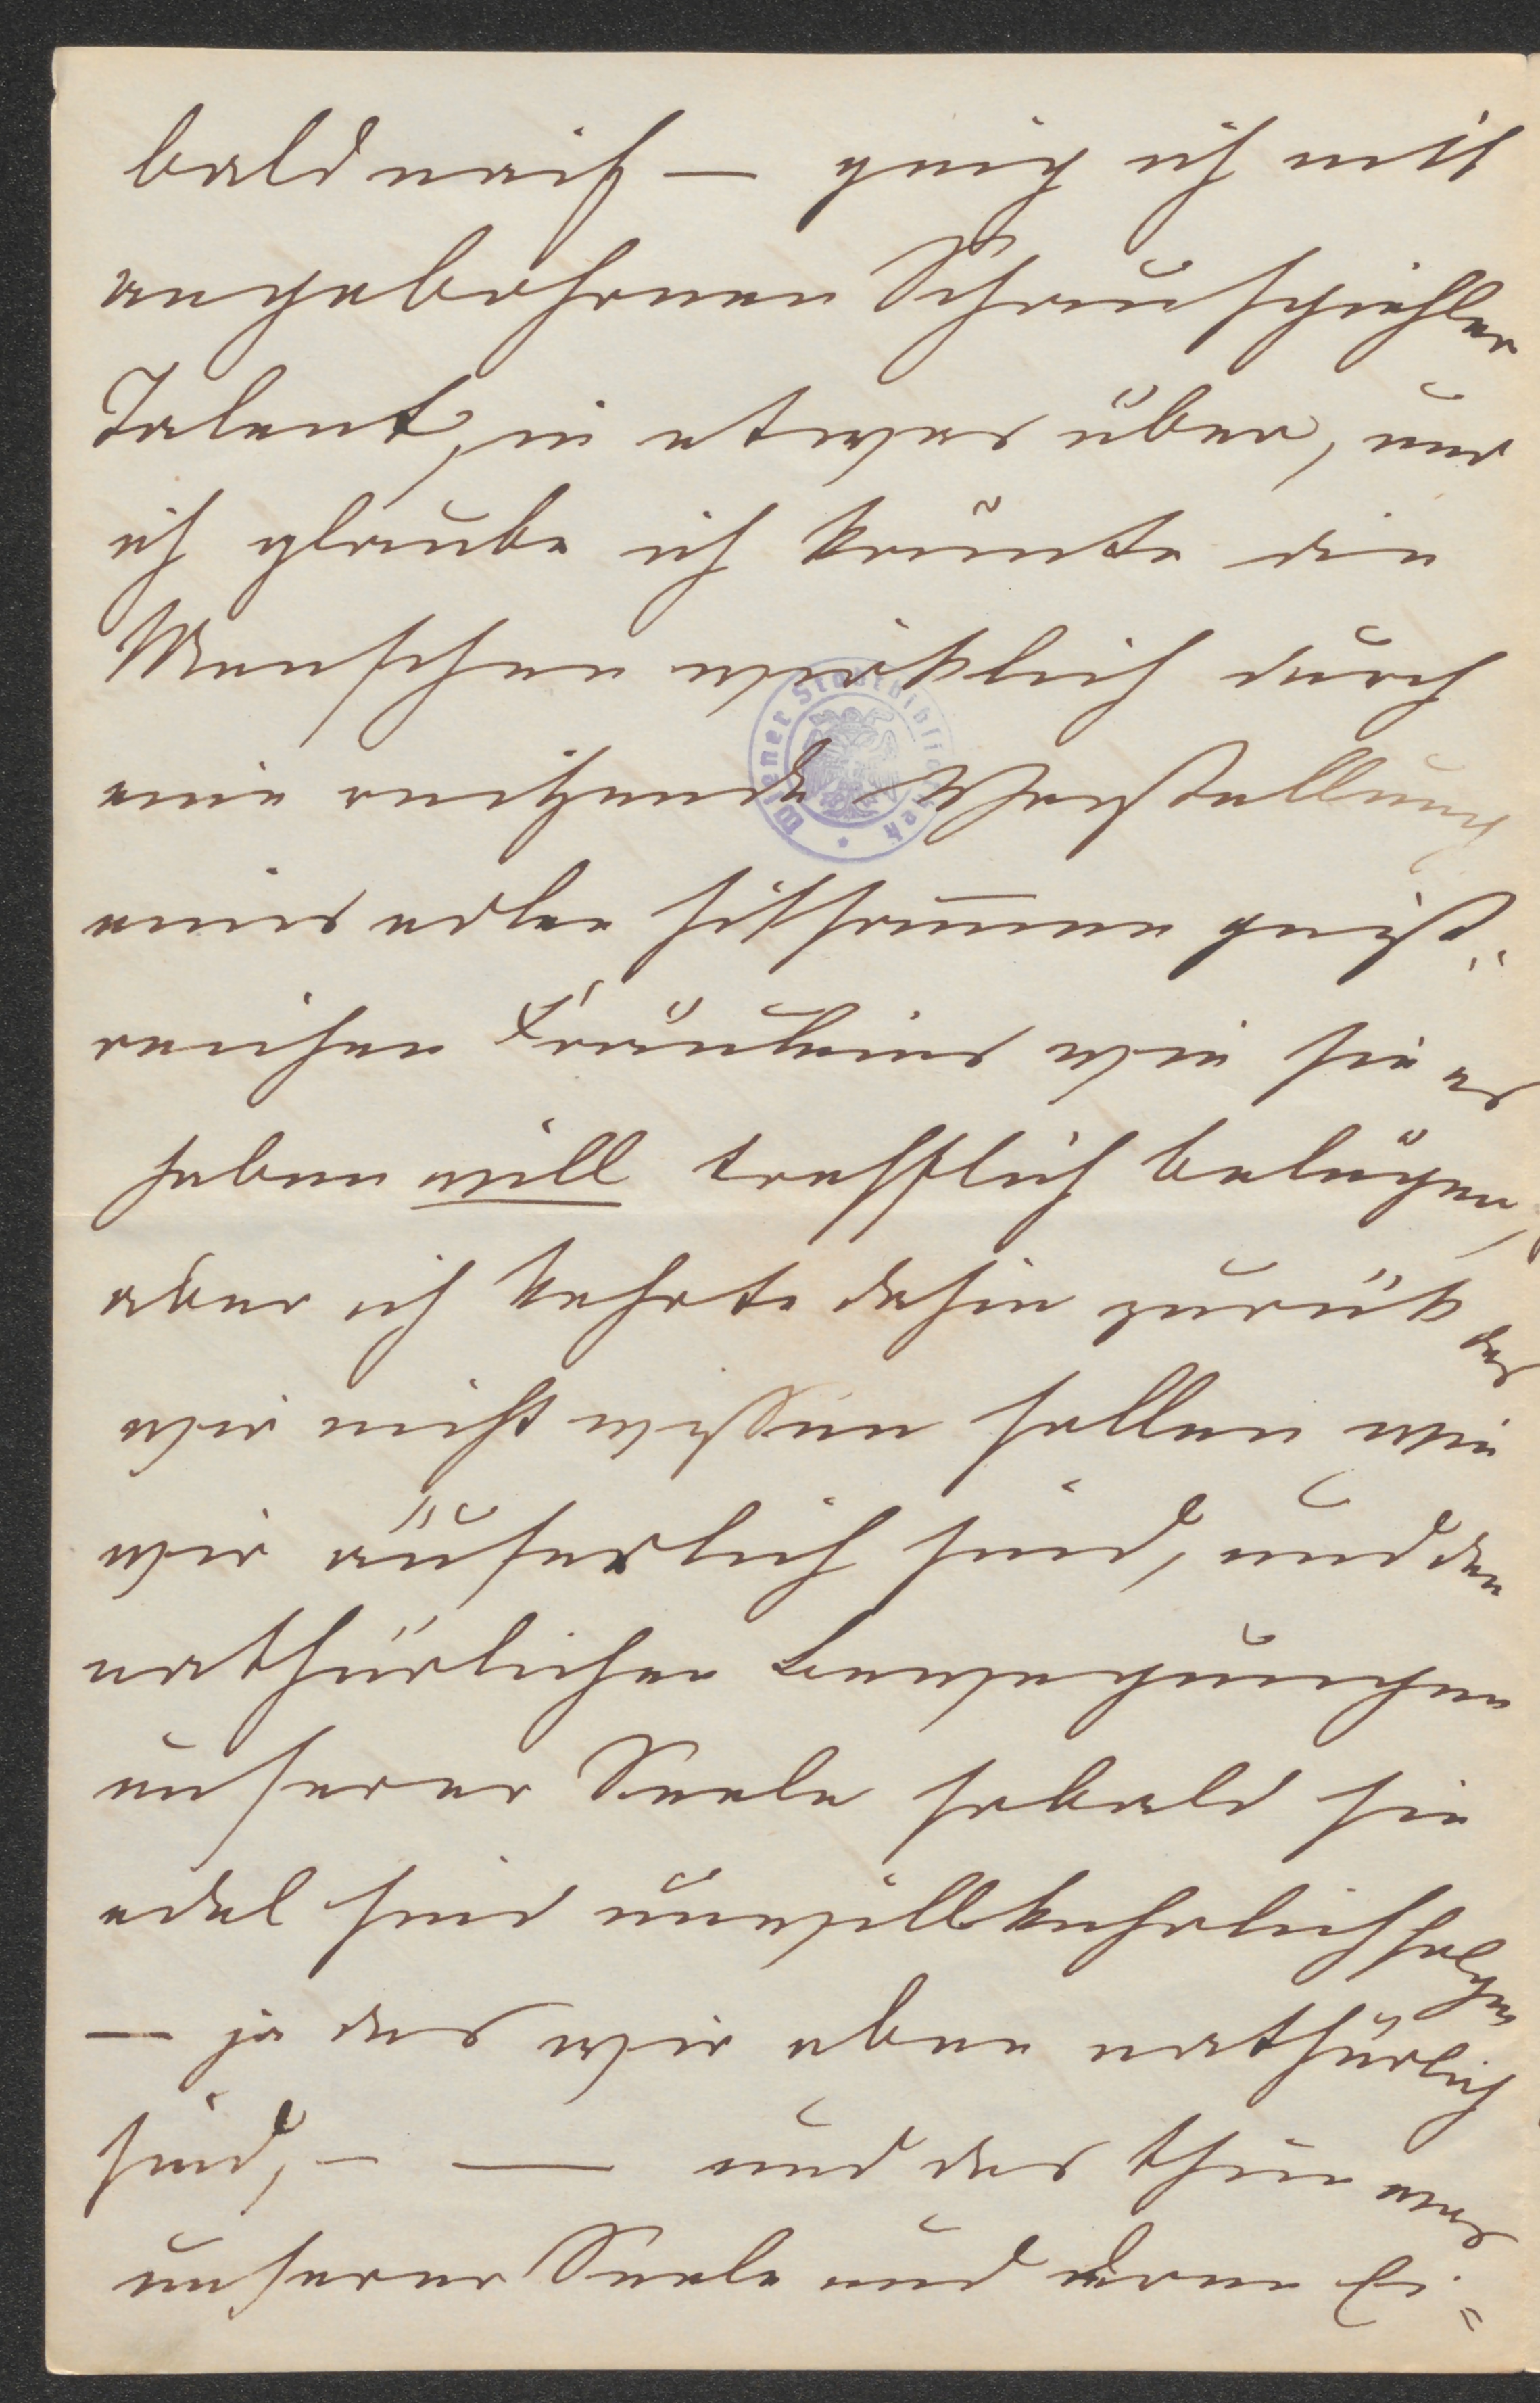 bald naif — ging ich mit
angebohrnen Schauspiehler
Talent, in etwas über, und
ich glaube ich könnte die
Menschen wirklich durch
eine reitzende Verstellung
eines edlen sitsam̅en geist¨
reichen Fräuleins wie sie es
haben will trefflich belügen,
aber ich kehrte dahin zurük das
wir nicht wissen sollen wie
wir äuserlich sind, und den
nathürlichen Bewegungen
unserer Seele sobald sie
edel sind unwillkuhrlich folgen
— ja das wir eben nathürlich
sind, – — und das thun was
unserer Seele und deren Ei=
Wiener Stadtbibliothek